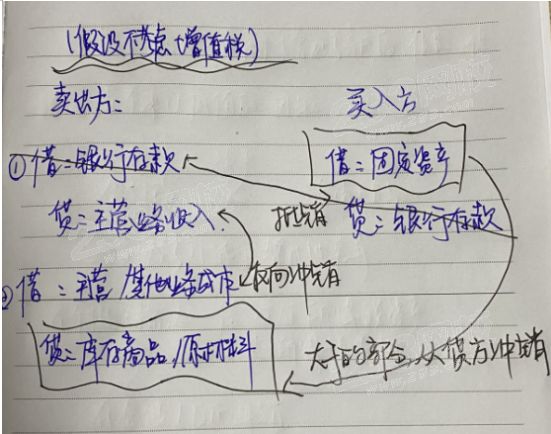 (假设不考虑增值税)
卖出方:
买入方
①借:银行存款
借:固定资产
贷:主营业务收入
抵销
贷:银行存款
②借:主营/其他业务成本
反向冲销
贷:库存商品/原材料
大于的部分,从贷方冲销